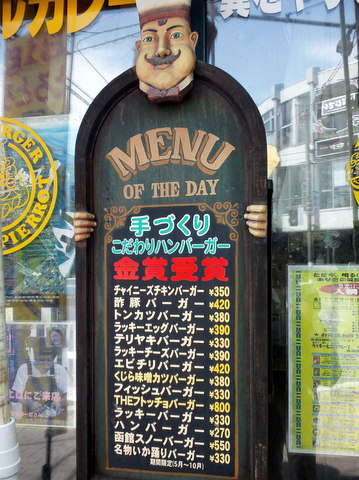 ルカレー
BURGER
PIERROT
MENU
OF THE DAY
手づくり
こだわりハンバーガー
金賞受賞
チャイニーズチキンバーガー ¥350
酢豚バーガー ¥420
トンカツバーガー ¥380
ラッキーエッグバーガー ¥390
テリヤキバーガー ¥330
ラッキーチーズバーガー ¥390
エビチリバーガー ¥420
くじら味噌カツバーガー ¥380
フィッシュバーガー ¥330
THEフトッチョバーガー ¥800
ラッキーバーガー ¥330
ハンバーガー ¥270
函館スノーバーガー ¥550
名物いか踊りバーガー ¥330
期間限定(5月～10月)